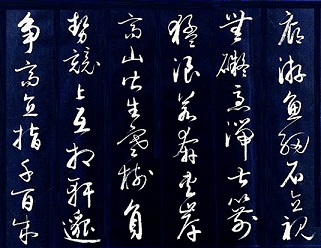 底游魚細石直視
無礙急湍甚箭
猛浪若奔夾岸
高山皆生寒樹負
勢競上互相軒邈
爭高直指千百成